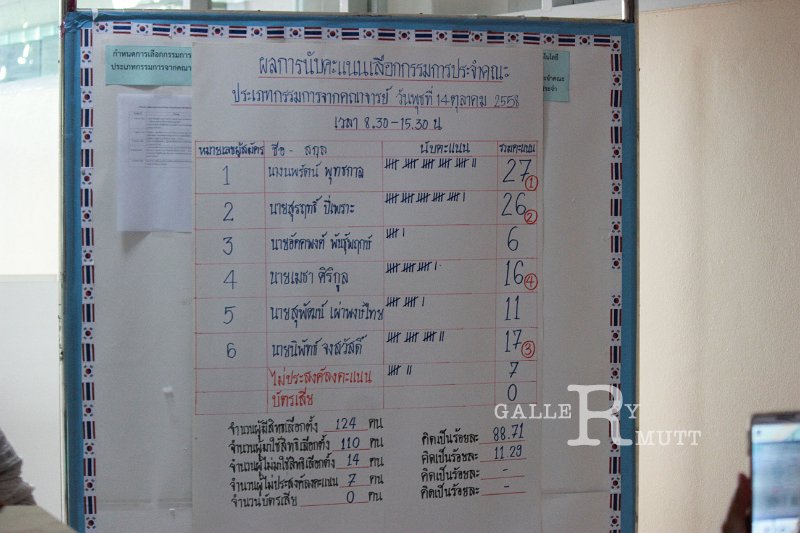 กำหนดการเลือกกรรมการ
ประเภทกรรมการจากคณา
ผลการนับคะแนนเลือกกรรมการประจำคณะ
ประเภทกรรมการจากคณาจารย์ วันพุธที่ 14 ตุลาคม 2558
เวลา 8.30-15.30 น
หมายเลขผู้สมัคร ชื่อ - สกุล นับคะแนน รวมคะแนน
1 นางนพรัตน์ พุทธกาล 27 1
2 นายสุรฤทธิ์ ปี่เพราะ 26 2
3 นายอัคคพงศ์ พันธุ์พฤกษ์ 6
4 นายเมธา ศิริกูล 16 4
5 นายสุพัฒน์ เผ่าพงษ์ไทย 11
6 นายนิพัทธ์ จงสวัสดิ์ 17 3
ไม่ประสงค์ลงคะแนน 7
บัตรเสีย 0
จำนวนผู้มีสิทธิเลือกตั้ง 124 คน
จำนวนผู้มาใช้สิทธิเลือกตั้ง 110 คน คิดเป็นร้อยละ 88.71
จำนวนผู้ไม่มาใช้สิทธิเลือกตั้ง 14 คน คิดเป็นร้อยละ 11.29
จำนวนผู้ไม่ประสงค์ลงคะแนน 7 คน คิดเป็นร้อยละ -
จำนวนบัตรเสีย 0 คน คิดเป็นร้อยละ -
GALLERY
RMUTT